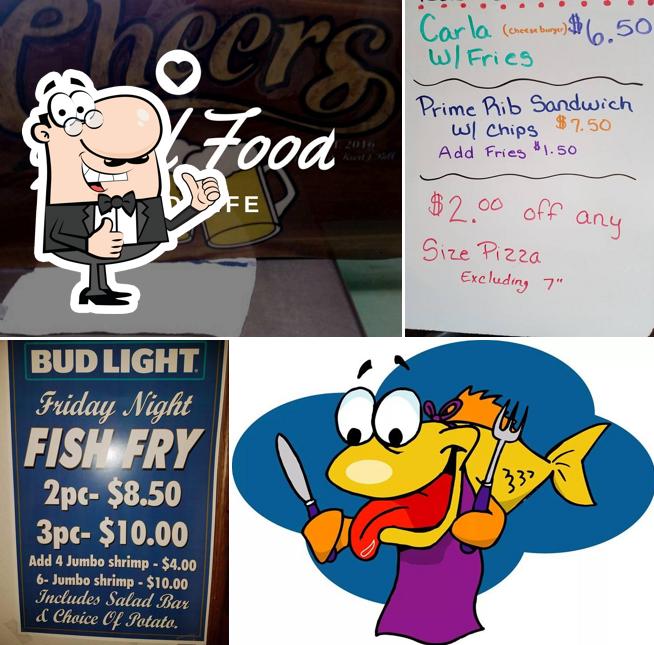 Cheers
Food
LIFE
Carla (cheeseburger) $6.50
W/ Fries
Prime Rib Sandwich
W/ Chips $7.50
Add Fries $1.50
$2.00 off any
Size Pizza
Excluding 7"
BUD LIGHT.
Friday Night
FISH FRY
2pc- $8.50
3pc- $10.00
Add 4 Jumbo shrimp - $4.00
6- Jumbo shrimp - $10.00
Includes Salad Bar
& Choice Of Potato.